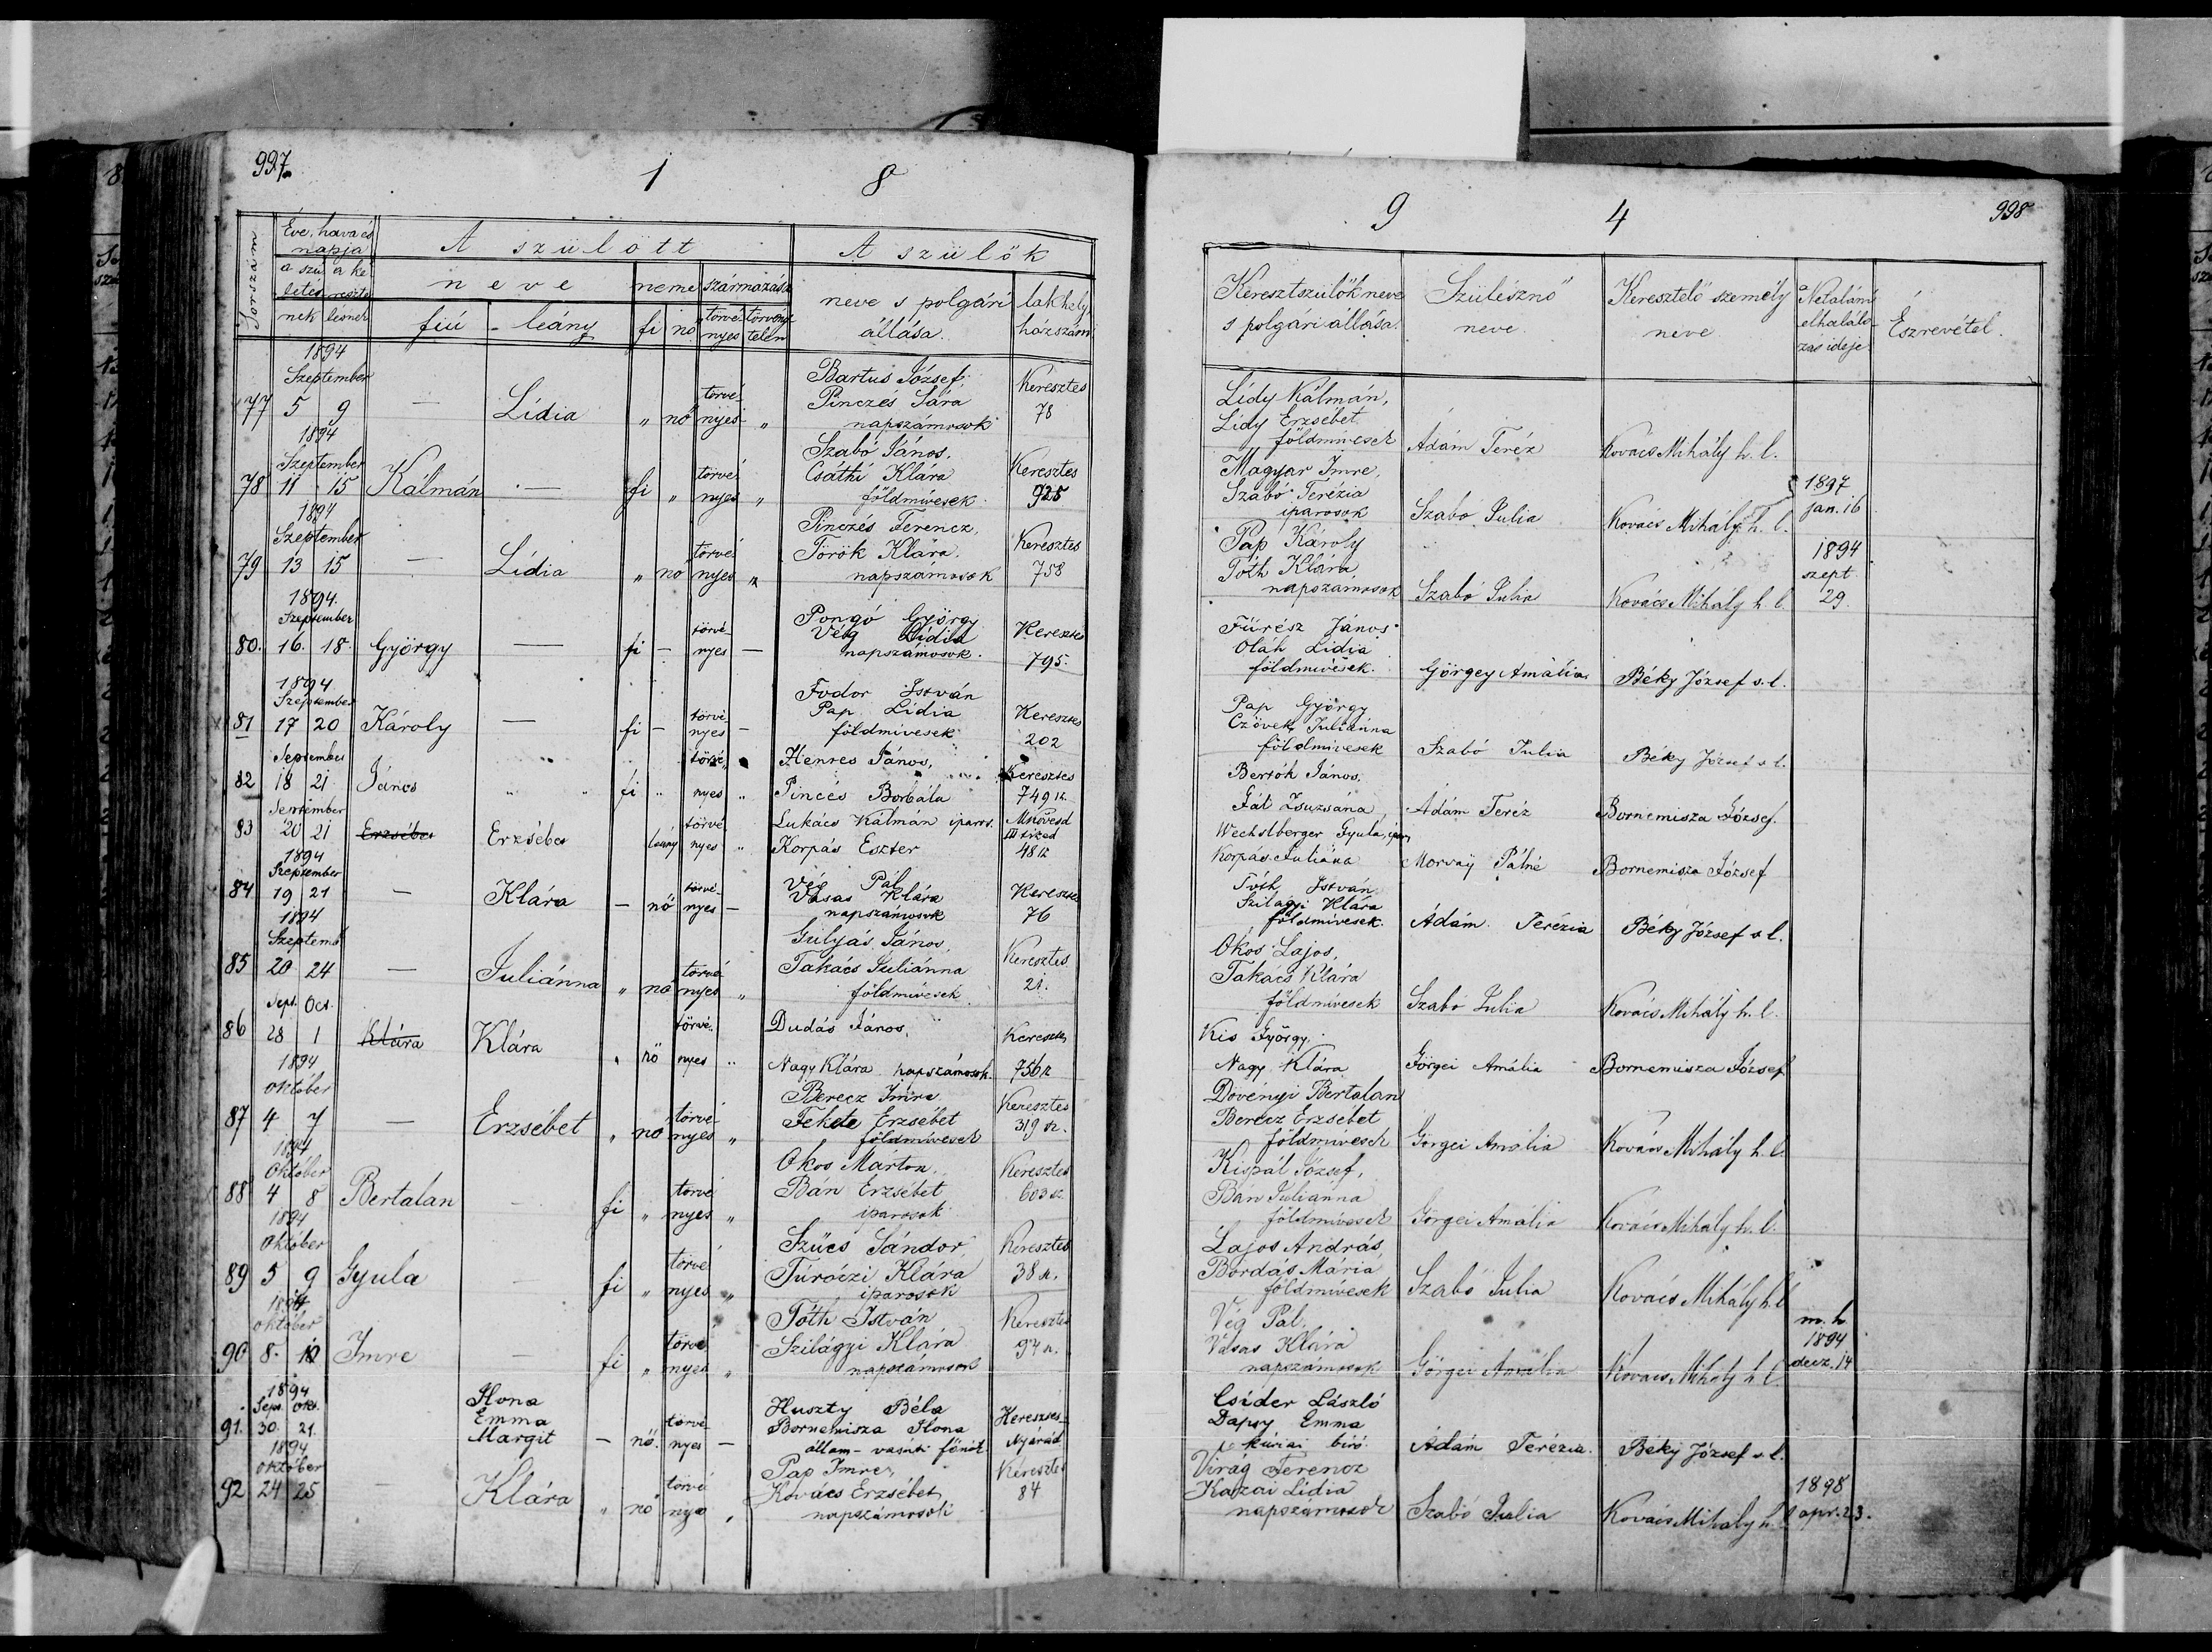 997.
1 8
Sorszám
Éve, hava és
napja
a szü- a ke-
letés- reszte-
nek lésnek
A szülött
neve
fiú - leány
neme
fi nő
származása
törvé- törvény-
nyes telen
A szülők
neve s polgári
állása.
lakhely
házszám
1894
Szeptember
77 5 9 — Lídia „ nő törvé-
nyes „
Bartus József,
Pinczés Sára
napszámosok
Keresztes
78
1894
Szeptember
78 11 15 Kálmán — fi „ törvé-
nyes „
Szabó János,
Csáthi Klára
földmívesek
Keresztes
925
1894
Szeptember
79 13 15 — Lídia „ nő törvé-
nyes „
Pinczés Ferencz,
Török Klára
napszámosok
Keresztes
758
1894.
Szeptember
80. 16. 18. György — fi — törvé-
nyes —
Pongó György
Vég Lídia
napszámosok.
Keresztes
795.
1894
Szeptember
81 17 20 Károly — fi — törvé-
nyes —
Fodor István
Pap Lídia
földmivesek
Keresztes
202
September
82 18 21 János „ „ fi „ törvé-
nyes „
Henres János,
Pinces Borbála
Keresztes
749 sz.
September
83 20 21 Erzsébet Erzsébet leány törvé-
nyes „
Lukács Kálmán iparos.
Korpás Eszter
III tized
48 sz
1894
Szeptember
84 19 21 — Klára — nő törvé-
nyes —
Vég Pál
Vasas Klára
napszámosok
Keresztes
76
1894
Szeptemb
85 20 24 — Juliánna „ nő törvé-
nyes „
Gulyás János,
Takács Juliánna
földmívesek
Keresztes
21.
Sept. Oct.
86 28 1 Klára Klára „ nő törvé-
nyes „
Dudás János,
Nagy Klára napszámosok.
Keresztes
756 sz
1894
október
87 4 7 — Erzsébet „ nő törvé-
nyes „
Berecz Imre
Fekete Erzsébet
földmívesek
Keresztes
319 sz.
1894
Október
88 4 8 Bertalan — fi „ törvé-
nyes „
Okos Márton,
Bán Erzsébet
iparosok
Keresztes
603 sz.
1894
Október
89 5 9 Gyula — fi „ törvé-
nyes „
Szücs Sándor,
Túróczi Klára
iparosok
Keresztes
38 sz.
1894
október
90 8. 10 Imre — fi „ törvé-
nyes „
Tóth István
Szilágyi Klára
napszámosok
Keresztes
94 sz.
1894
Sept. Okt.
91. 30. 21. Ilona
Emma
Margit — nő. törvé-
nyes —
Huszty Béla
Bornemisza Ilona
állam-vasúti főnöt.
Keresztes-
Nyárád
1894
október
92 24 25 — Klára „ nő törvé-
nyes „
Pap Imre,
Kovács Erzsébet
napszámosok
Keresztes
84
9 4
998
Keresztszülők neve
s polgári állása.
Szülésznő
neve.
Keresztelő személy
neve
Netaláni
elhalálo-
zás ideje
Észrevétel.
Lídy Kálmán,
Lídy Erzsébet
földmívesek Ádám Teréz Kovács Mihály h. l.
Magyar Imre,
Szabó Terézia
iparosok Szabó Julia Kovács Mihály h. l. 1897
jan. 16
Pap Károly
Tóth Klára
napszámosok Szabó Julia Kovács Mihály h. l. 1894
szept.
29.
Fürész János
Oláh Lidia
földmivesek. Görgey Amália Béky József s. l.
Pap György
Czövek Juliánna
földmivesek Szabó Julia Béky József s. l.
Bertók János,
Gál Zsuzsána Ádám Teréz Bornemisza József.
Wechslberger Gyula, ipar
Korpás Juliána Morvay Pálné Bornemisza József
Tóth István
Szilágyi Klára
földmivesek. Ádám Terézia Béky József s. l.
Okos Lajos,
Takács Klára
földmívesek Szabó Julia Kovács Mihály h. l.
Kis György,
Nagy Klára Görgei Amália Bornemisza József
Dövényi Bertalan
Berecz Erzsébet
földmívesek Görgei Amália Kovács Mihály h. l.
Kispál József,
Bán Juliánna
földmívesek Görgei Amália Kovács Mihály h. l.
Lajos András,
Bordás Mária
földmívesek Szabó Julia Kovács Mihály h. l.
Vég Pál,
Vasas Klára
napszámosok Görgei Amália Kovács Mihály h. l. m. h.
1894
decz. 14
Csider László
Dapsy Emma
kúriai biró. Ádám Terézia. Béky József s. l.
Virág Ferencz
Kazai Lidia
napszámosok Szabó Julia Kovács Mihály h. l. 1898
apr. 23.